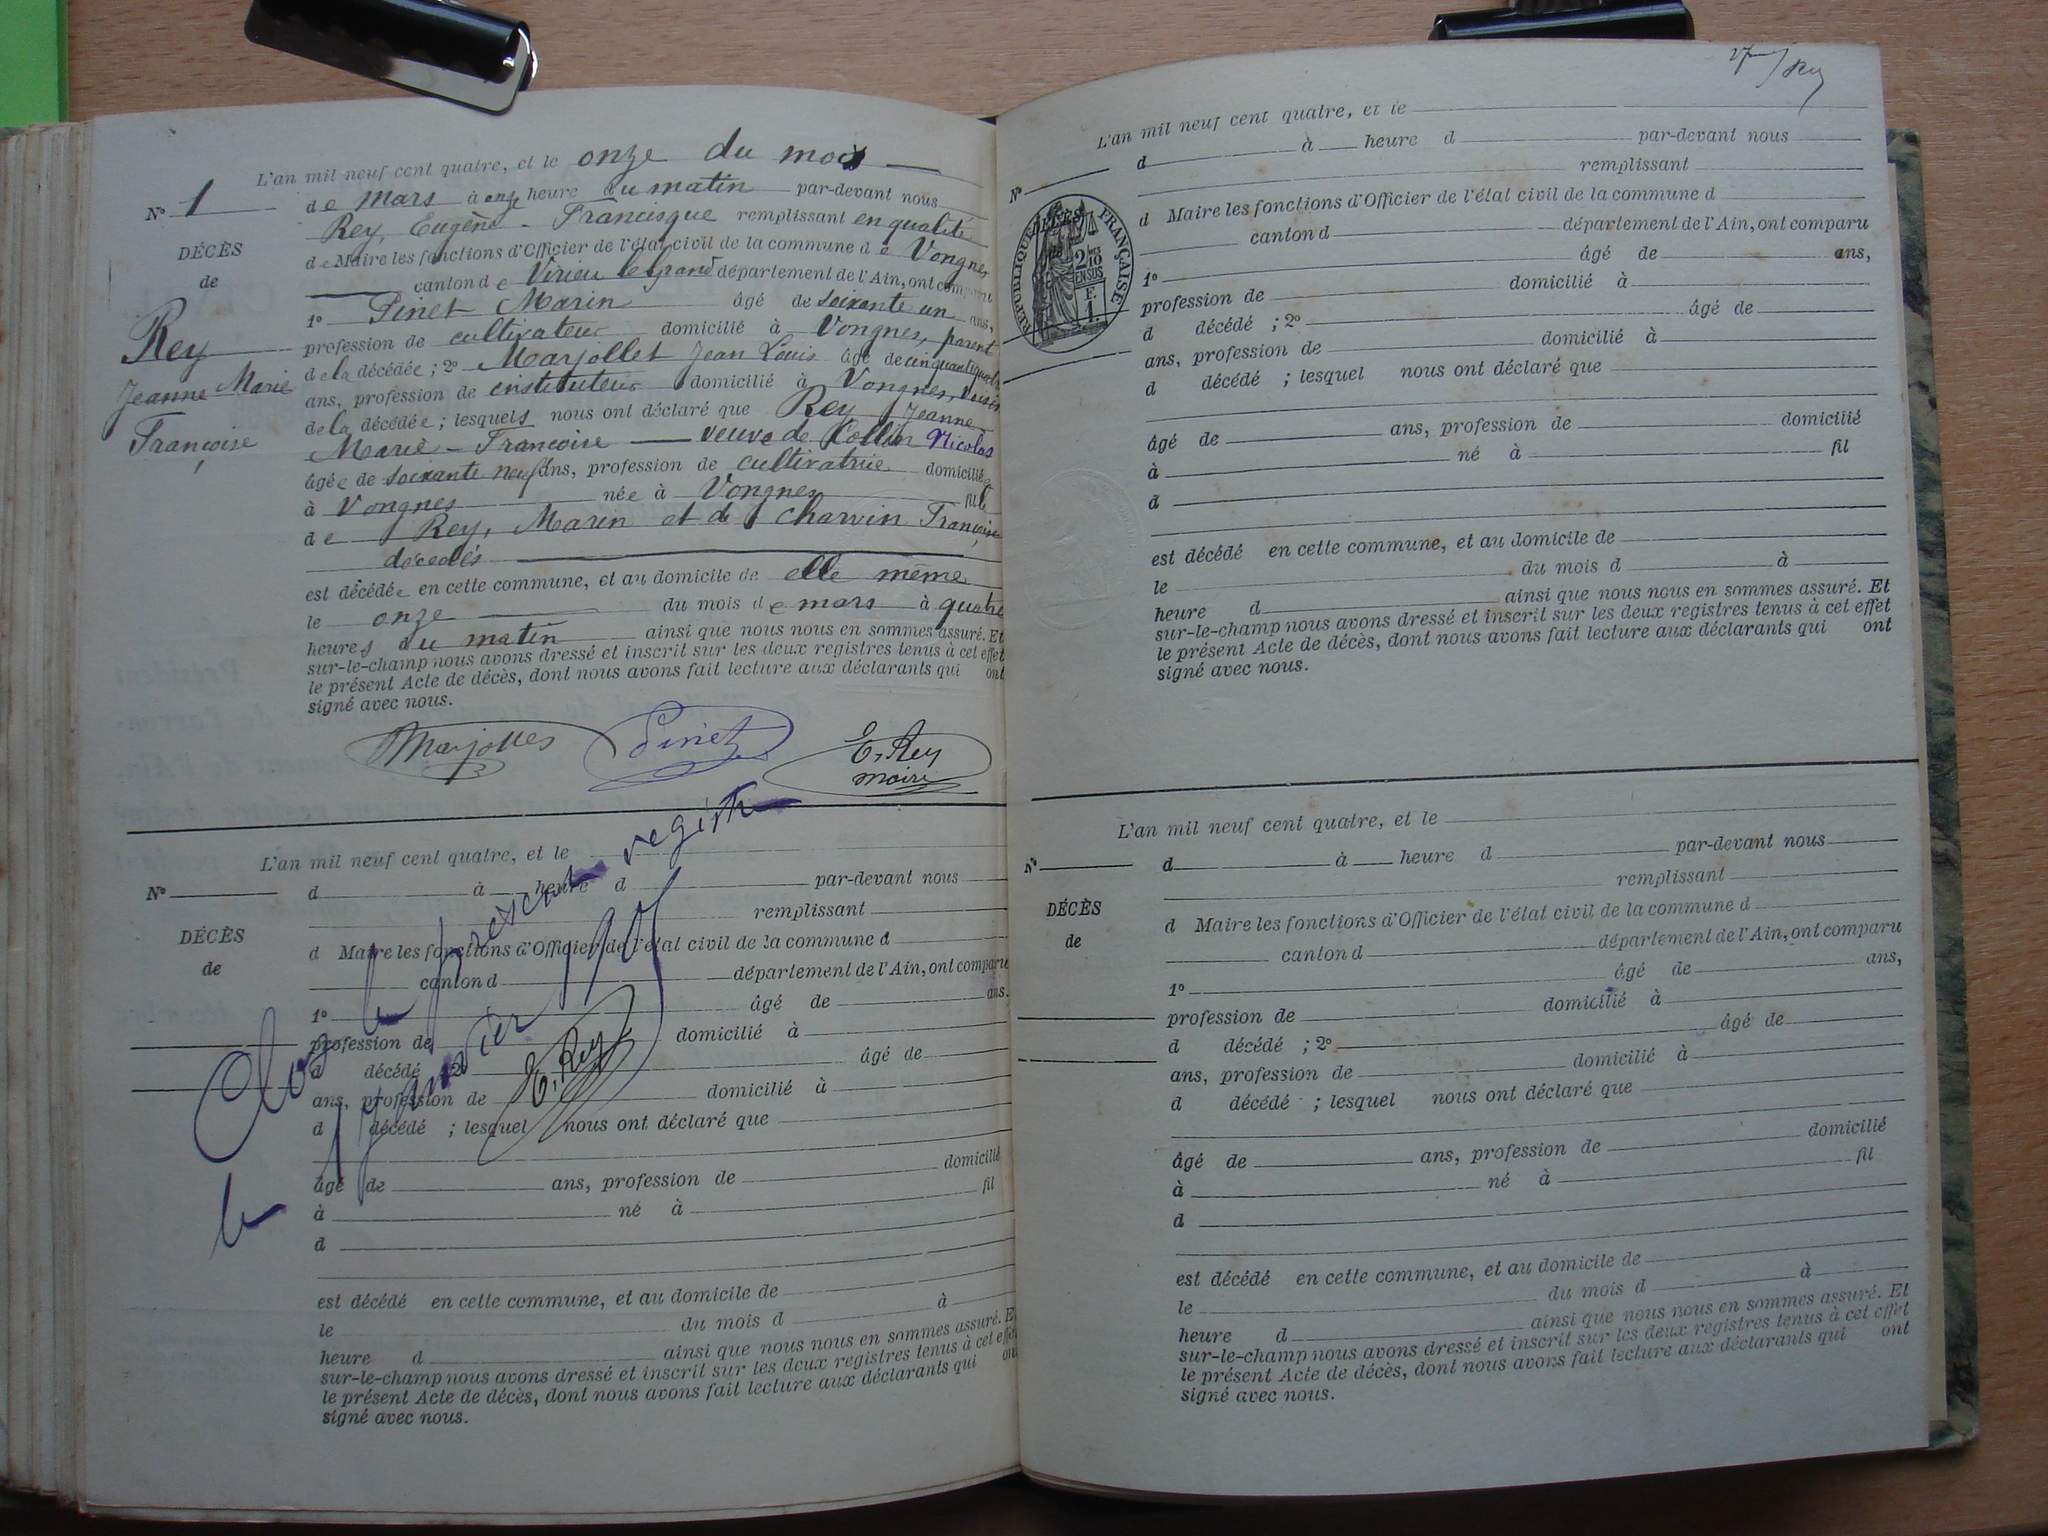 L'an mil neuf cent quatre, et le onze du mois
No 1
de mars à onze heure du matin par-devant nous
Rey, Eugène-Francisque remplissant en qualité
DÉCÈS
de
Rey
Jeanne Marie
Françoise
de Maire les fonctions d'Officier de l'état civil de la commune de Vongnes
canton de Virieu le grand département de l'Ain, ont comparu
1o Pinet Marin âgé de soixante un ans,
profession de cultivateur domicilié à Vongnes, parent
de la décédée ; 2o Marjollet Jean Louis âgé de cinquante quatre
ans, profession de instituteur domicilié à Vongnes, voisin
de la décédée ; lesquels nous ont déclaré que Rey Jeanne
Marie-Françoise veuve de Collin Nicolas
âgée de soixante neuf ans, profession de cultivatrice domiciliée
à Vongnes née à Vongnes fille
de Rey, Marin et de Charvin Françoise
décédés
est décédée en cette commune, et au domicile de elle même
le onze du mois de mars à quatre
heures du matin ainsi que nous nous en sommes assuré. Et
sur-le-champ nous avons dressé et inscrit sur les deux registres tenus à cet effet
le présent Acte de décès, dont nous avons fait lecture aux déclarants qui ont
signé avec nous.
Marjollet Pinet E. Rey
maire
L'an mil neuf cent quatre, et le
No d à heure d par-devant nous
remplissant
DÉCÈS
de
d Maire les fonctions d'Officier de l'état civil de la commune d
canton d département de l'Ain, ont comparu
1o âgé de ans.
profession de domicilié à
d décédé ; 2o âgé de
ans, profession de domicilié à
d décédé ; lesquel nous ont déclaré que
âgé de ans, profession de domicilié
à né à fil
d
est décédé en cette commune, et au domicile de
le du mois d à
heure d ainsi que nous nous en sommes assuré. Et
sur-le-champ nous avons dressé et inscrit sur les deux registres tenus à cet effet
le présent Acte de décès, dont nous avons fait lecture aux déclarants qui ont
signé avec nous.
Clos le présent registre
le 1er janvier 1905
E. Rey
Rey
L'an mil neuf cent quatre, et le
No d à heure d par-devant nous
remplissant
RÉPUBLIQUE FRANÇAISE
2/10
EN SUS
E.
1.
d Maire les fonctions d'Officier de l'état civil de la commune d
canton d département de l'Ain, ont comparu
1o âgé de ans,
profession de domicilié à
d décédé ; 2o âgé de
ans, profession de domicilié à
d décédé ; lesquel nous ont déclaré que
âgé de ans, profession de domicilié
à né à fil
d
est décédé en cette commune, et au domicile de
le du mois d à
heure d ainsi que nous nous en sommes assuré. Et
sur-le-champ nous avons dressé et inscrit sur les deux registres tenus à cet effet
le présent Acte de décès, dont nous avons fait lecture aux déclarants qui ont
signé avec nous.
L'an mil neuf cent quatre, et le
No d à heure d par-devant nous
remplissant
DÉCÈS
de
d Maire les fonctions d'Officier de l'état civil de la commune d
canton d département de l'Ain, ont comparu
1o âgé de ans,
profession de domicilié à
d décédé ; 2o âgé de
ans, profession de domicilié à
d décédé ; lesquel nous ont déclaré que
âgé de ans, profession de domicilié
à né à fil
d
est décédé en cette commune, et au domicile de
le du mois d à
heure d ainsi que nous nous en sommes assuré. Et
sur-le-champ nous avons dressé et inscrit sur les deux registres tenus à cet effet
le présent Acte de décès, dont nous avons fait lecture aux déclarants qui ont
signé avec nous.